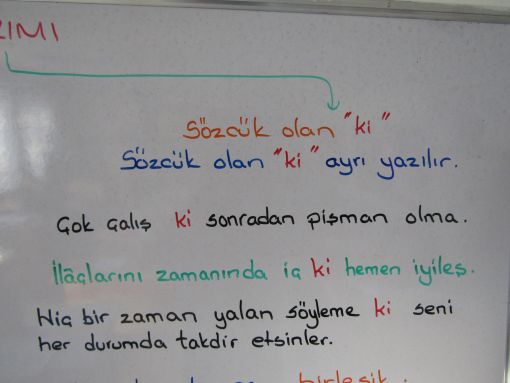 Sözcük olan "ki"
Sözcük olan "ki" ayrı yazılır.
Çok çalış ki sonradan pişman olma.
İlâçlarını zamanında iç ki hemen iyileş.
Hiç bir zaman yalan söyleme ki seni
her durumda takdir etsinler.
birleşik